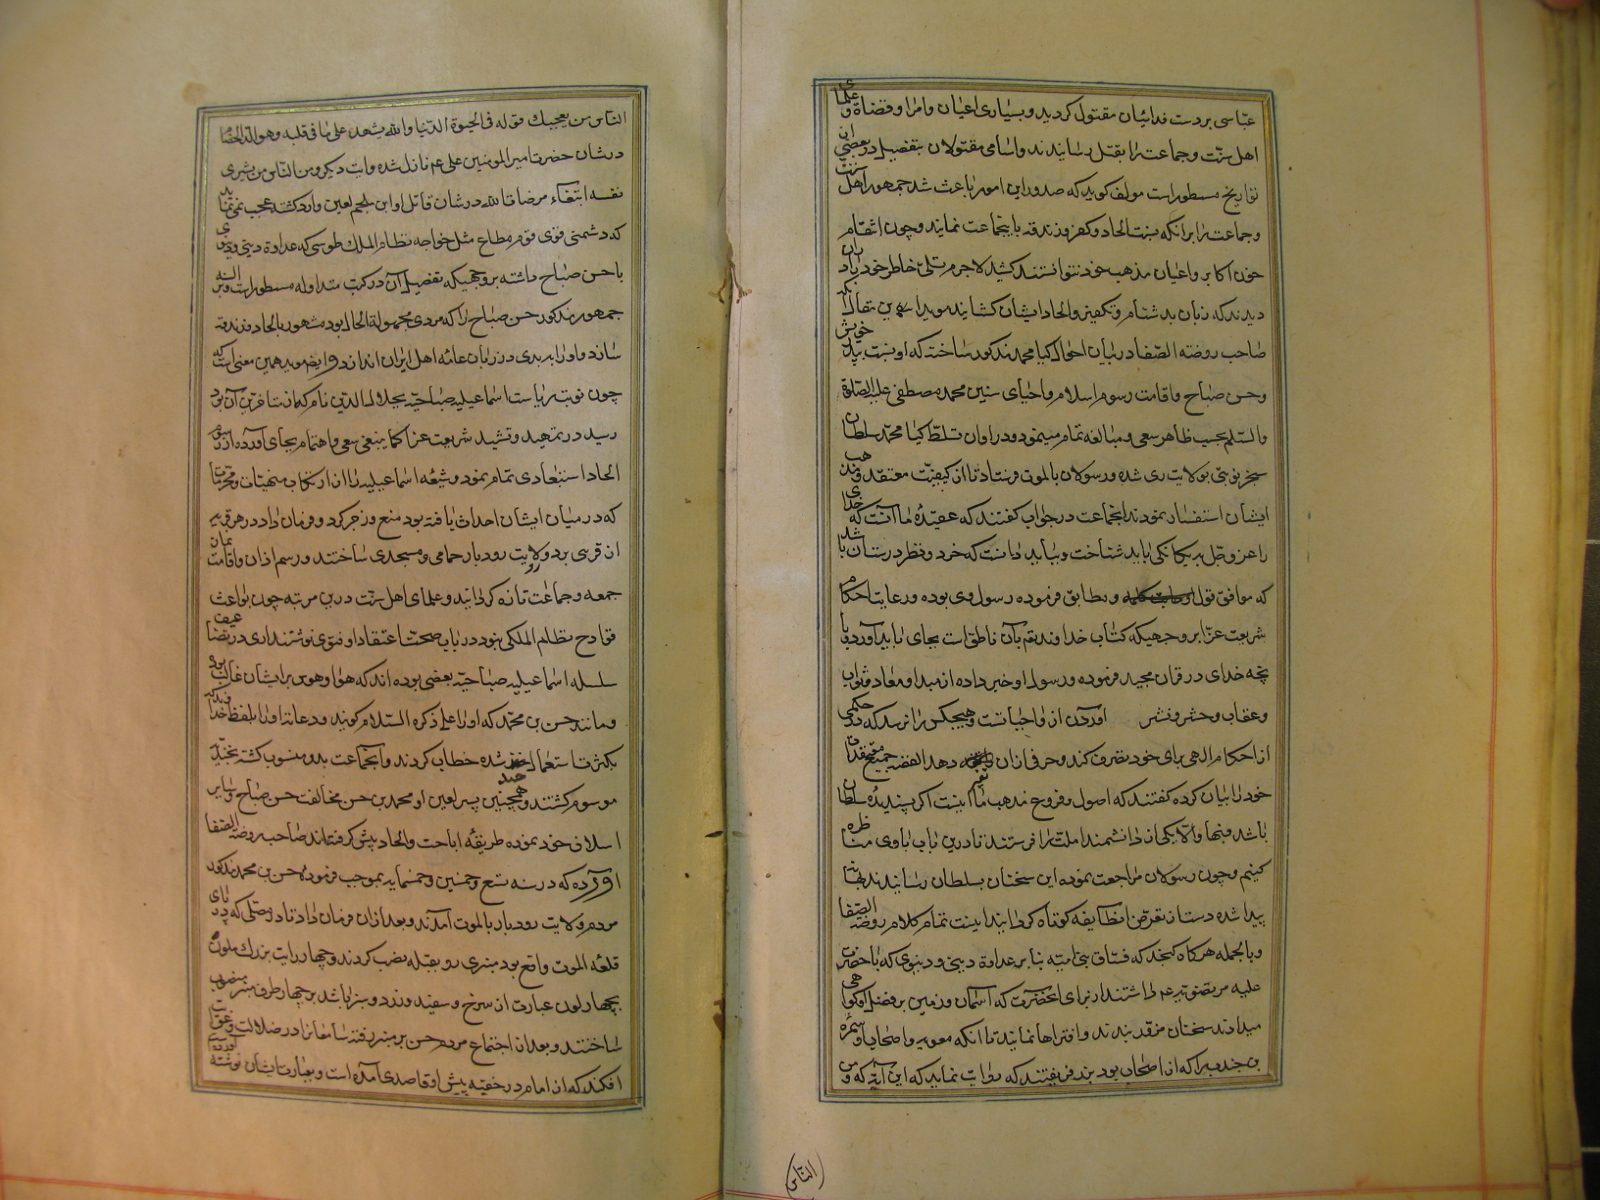 عباسی بر دست فدائیان مقتول کردید و بسیاری اعیان و امرا و قضاة و علمای
اهل سنت و جماعت را بقتل رسانیدند و اسامی مقتولان بتفصیل در بعضی از
تواریخ مسطور است مولف کوید که صدور این امور باعث شد جمهور اهل سنت
و جماعت را برانکه نسبت الحاد و کفر و زندقه باینجماعت نمایند و چون انتقام
خون اکابر و اعیان مذهب خود نتوانستند کشید لاجرم تسلی خاطر خود بآن
دیدند که زبان بدشنام و تکفیر و الحاد ایشان کشایند موید این مقال آنکه
صاحب روضه الصفا در بیان احوال کیا محمد مذکور ساخته که او بسنت پدر خویش
و حسن صباح باقامت رسوم اسلام و احیای سنن محمد مصطفی علیه الصلوة
والسلم بحسب ظاهر سعی و مبالغه تمام مینمود و در اوان تسلط کیا محمد سلطان
سنجر نوبتی بولایت ری شده و رسولان بالموت فرستاد تا از کیفیت معتقد و مذهب
ایشان استفسار نمودند انجماعت در جواب کفتند که عقیدهٔ ما آنست که خدای
را عز و جل به یکانکی باید شناخت و بباید دانست که خرد و نظر درست آن باشد
که موافق قول و مطابق فرموده رسول وی بوده و رعایت احکام
شریعت غرا بر وجهیکه کتاب خداوند قدیم بآن ناطق است بجای باید آورد و بانچه
خدای در قرآن مجید فرموده و رسول او خبر داده از مبدا و معاد و ثواب
و عقاب و حشر و نشر آوردن از واجبات است و هیچکس را نرسد که در حکمی
از احکام الهی برای خود تصرف کند و حرفی ازان دهد القصه جمیع معتقدات
خود را بیان کرده کفتند که اصول و فروع مذهب ما اینست اکر پسندیدهٔ سلطان
باشد فبها و الا یکی از دانشمندان ملت را فرستند تا درین باب با وی مناظره
کنیم و چون رسولان مراجعت نموده این سخنان بسلطان رسانیدند
پیدا شده دست از تعرض انطایفه کوتاه کردانید اینست تمام کلام روضه الصفا
و بالجمله هر کاه سجند که فساق بنی امیه بنابر عداوة دینی و دنیوی که با حضرت
علیه مرتضوی برعم داشتند از برای انحضرت که آسمان و زمین بر فضل او کواهی
میدادند سخنان مزور بندند و افتراها نمایند تا انکه معویه و اصحاب او سمره
بن جندب را که از اصحاب بود بزر فریفتند که روایت نماید که این آیه که و من
الناس
الناس من یعجبك قوله فی الحیوة الدنیا و الله یشهد علی ما فی قلبه و هو الد الخصام
در شان حضرت امیر المومنین علی عم نازل شده و ایت دیکر و من الناس من یشری
نفسه ابتغاء مرضات الله در شان قاتل او ابن ملجم لعین وارد کشته عجب نمی نماید
که دشمنی قوی قوم مطاع مثل خواجه نظام الملك طوسی که عداوة دینی و دنیوی
با حسن صباح داشته بر وجهیکه تفصیل آن در کتب متداوله مسطور است و بر السنه
جمهور مذکور حسن صباح را که مردی مجهولة الحال بود مشهور بالحاد و زندقه
سازد و او را ببدی در زبان عامهٔ اهل ایران اندازد و ایضا موید همین معنی است که
چون نوبت ریاست اسماعیلیه صباحیه بجلال الدین نام که از متاخرین آن بود
رسید در تمهید و تشیید شریعت غرا کما ینبغی سعی و اهتمام بجای آورده از رسوم
الحاد استبعادی تمام نمود و شیعهٔ اسماعیلیه را از ارتکاب منهیات و محرمات
که در میان ایشان احداث یافته بود منع و زجر کرد و فرمان داد در هر قریه
از قری بر ولایت رودبار حمامی و مسجدی ساختند و رسم اذان و اقامت نماز
جمعه و جماعت تازه کردانید و علمای اهل سنت درین مرتبه چون بواعث
قوادح نظام الملکی نبود در باب صحت اعتقاد او فتوی نوشتند اری در تضاعیف
سلسله اسماعیلیه صباحیه بعضی بوده اند که هوا و هوس بر ایشان غالب بود
و مانند حسن بن محمد که او را علی ذکره السلام کویند و دعاة او را بلفظ خداوند
بکثرت استعمال شده خطاب کردند و انجماعت بدو منسوب کشته
موسوم کشتند و همچنین پسر لعین او محمد بن حسن مخالفت حسن صباح و سایر
اسلاف خود نموده طریقهٔ اباحت و الحاد پیش کرفته اند صاحب روضه الصفا
آورده که در سنه تسع و خمسین و خمسمایه بموجب فرمودهٔ حسن بن محمد مذکور
مردم ولایت رودبار بالموت آمدند و بعد ازان فرمان داد تا در مصلی که در پای
قلعهٔ الموت واقع بود منبری رو بقبله نصب کردند و چهار رایت بزرك ملون
بچهار لون عبارت از سرخ و سفید و زرد و سبز باشد بر چهار طرف منبر منصوب
ساختند و بعد از اجتماع مردم حسن بر منبر رفته سامعانرا در ضلالت و غوایت
افکند که از امام در خفیه پیش او قاصدی آمده است و بعبارت ایشان نوشته آورده